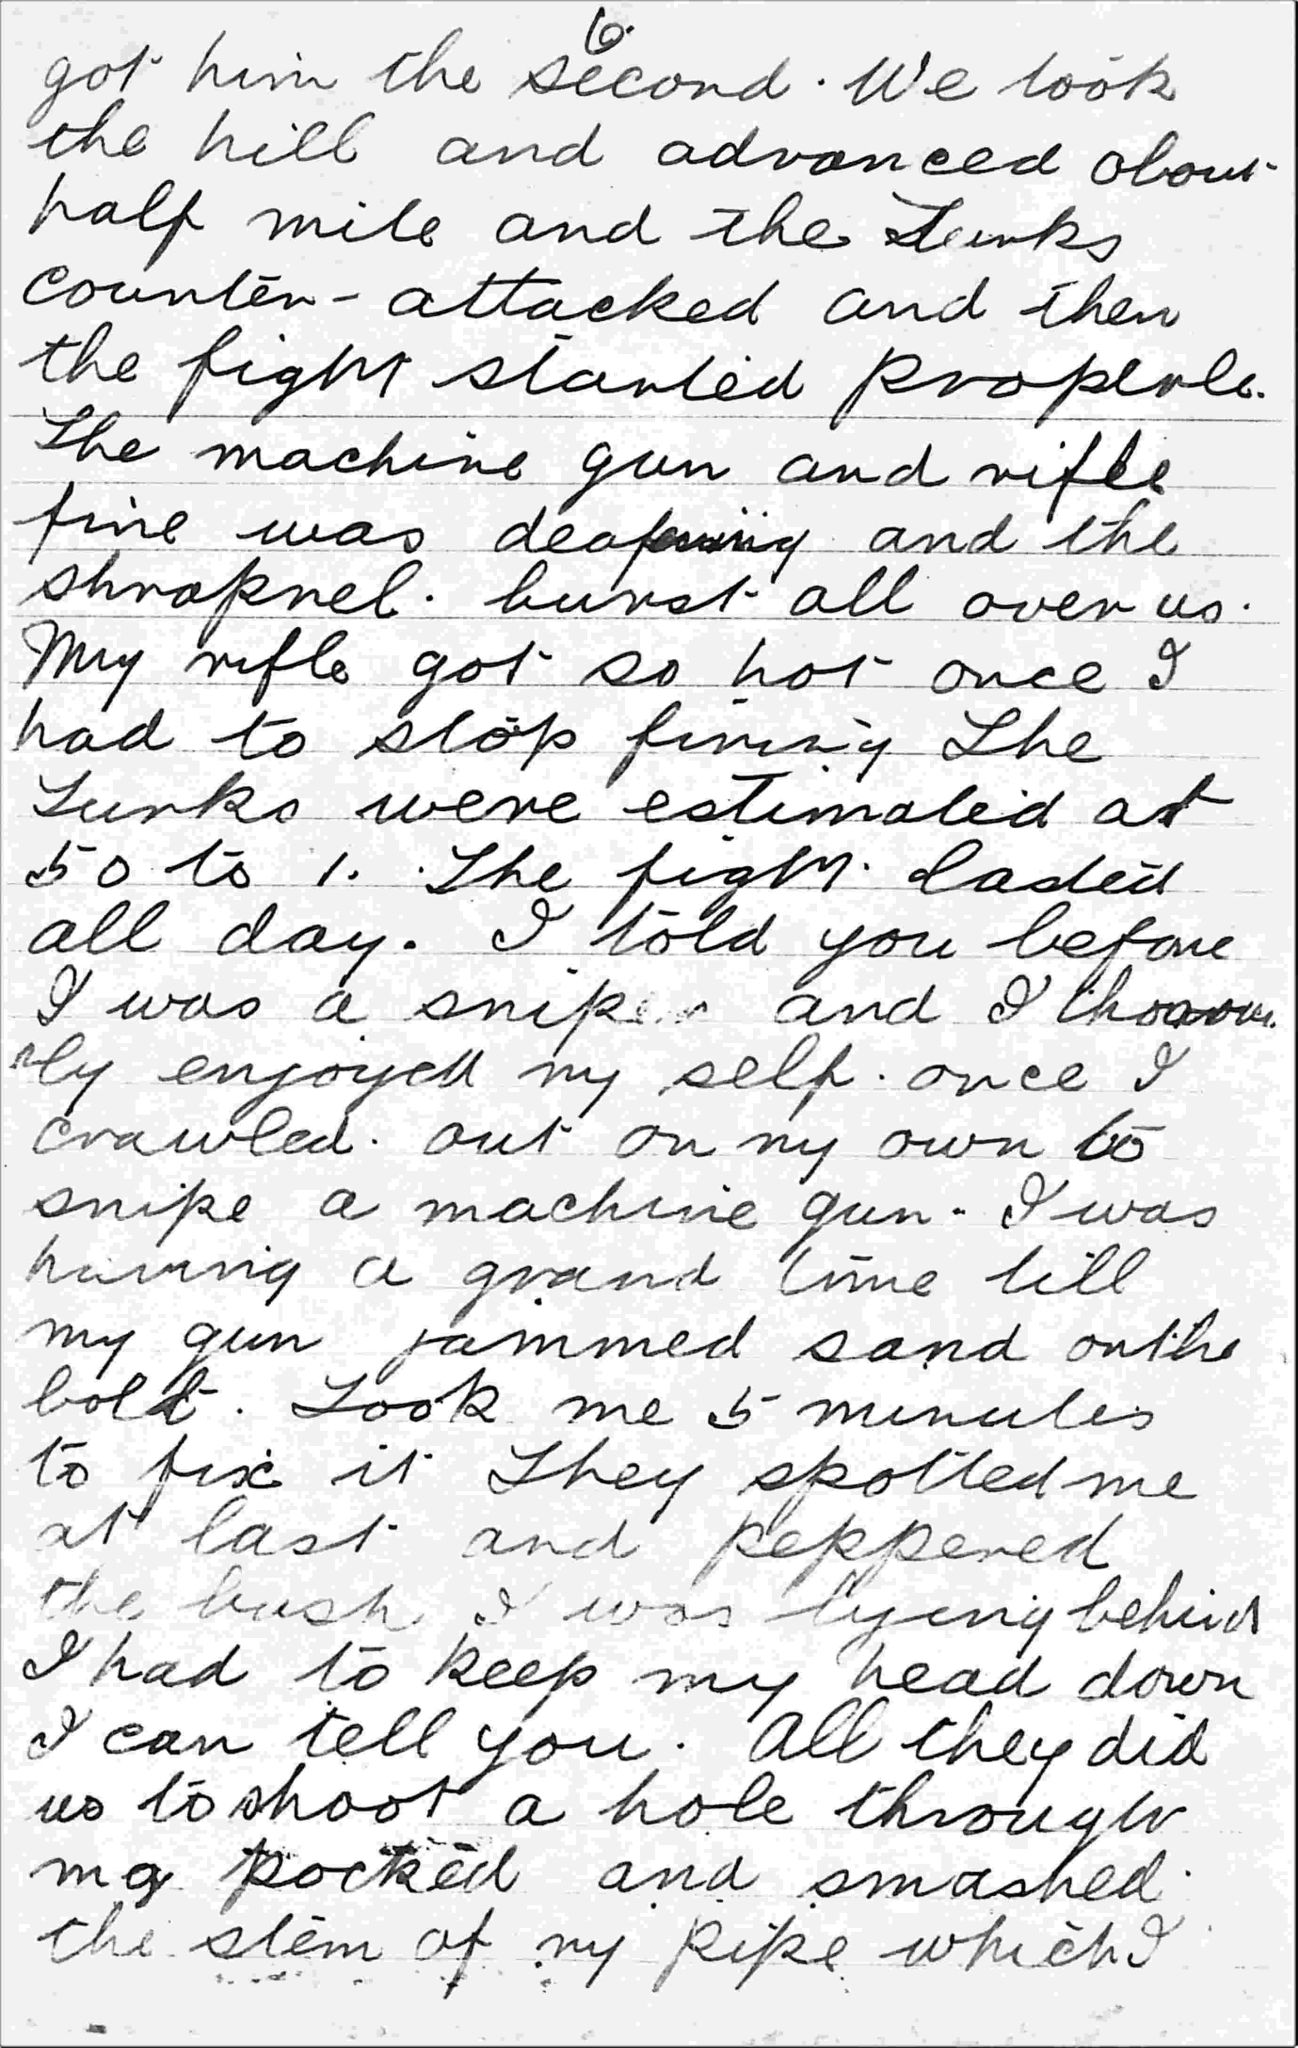 6.
got him the second. We took
the hill and advanced about
half mile and the Turks
counter-attacked and then
the fight started properle.
The machine gun and rifle
fire was deafening and the
shrapnel. burst all over us.
My rifle got so hot once I
had to stop firing The
Turks were estimated at
50 to 1. The fight. lasted
all day. I told you before
I was a sniper and I thorou
ly enjoyed my self. once I
crawled. out on my own to
snipe a machine gun. I was
having a grand time till
my gun jammed sand on the
bolt. Took me 5 minutes
to fix it They spotted me
at last and peppered
the bush I was lying behind
I had to keep my head down
I can tell you. All they did
us to shoot a hole through
my pocked and smashed
the stem of my pipe which I